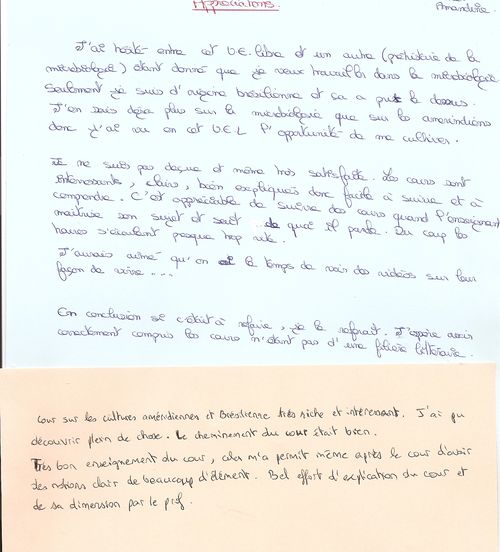 Appréciations.
Amandine.
J'ai hésité entre cet U.E. libre et un autre (préhistoire de la
microbiologie) étant donné que je veux travailler dans la microbiologie
Seulement je suis d'origine brésilienne et ça a pris le dessus.
J'en sais déjà plus sur la microbiologie que sur les amérindiens
donc j'ai vu en cet U.E.L l'opportunité de me cultiver.
Je ne suis pas déçue et même très satisfaite. Les cours sont
intéressants, clairs, bien expliqués donc facile à suivre et à
comprendre. C'est appréciable de suivre des cours quand l'enseignant
maîtrise son sujet et sait de quoi il parle. Du coup les
heures s'écoulent presque trop vite.
J'aurais aimé qu'on ai le temps de voir des vidéos sur leur
façon de vivre ....
En conclusion si c'était à refaire, je le referait. J'espère avoir
correctement compris les cours n'étant pas d'une filière littéraire.
Cour sur les cultures amérdiennes et Brésilienne très riche et intéressant. J'ai pu
découvrir plein de chose. Le cheminement du cour était bien.
Très bon enseignement du cour, cela m'a permit même après le cour d'avoir
des notions clair de beaucoup d'élément. Bel effort d'explication du cour et
de sa dimension par le prof.